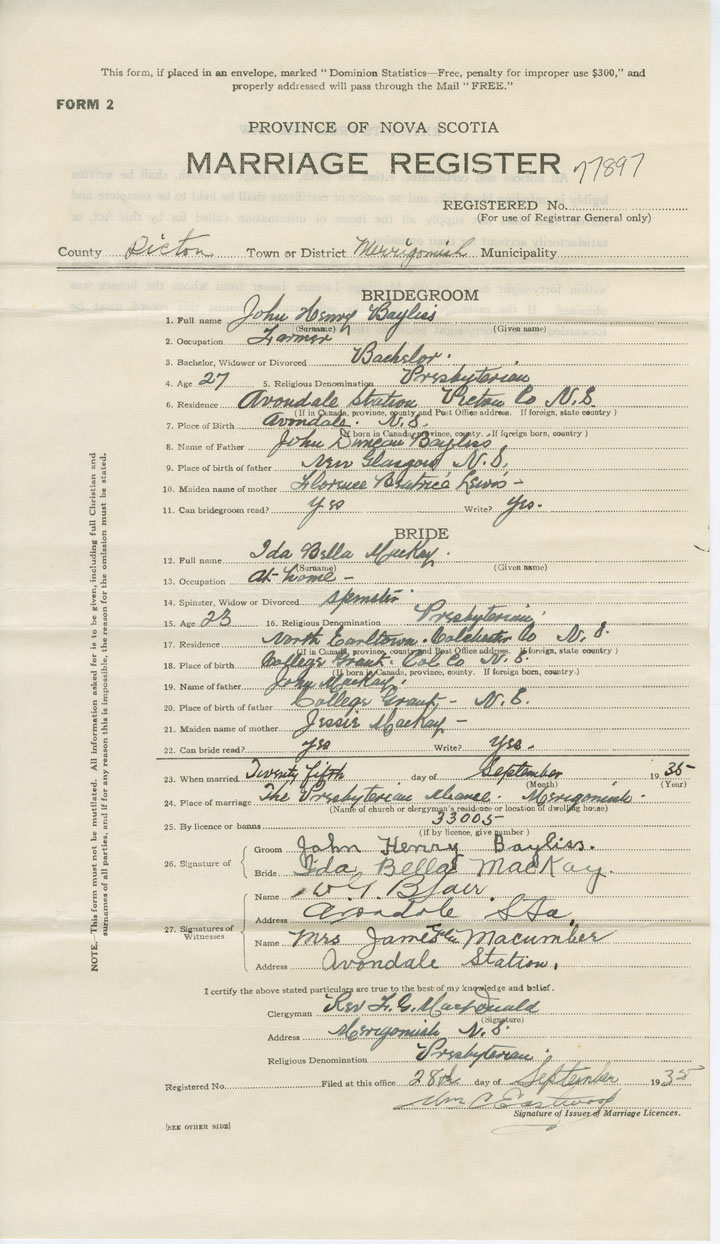 This form, if placed in an envelope, marked "Dominion Statistics—Free, penalty for improper use $300," and
properly addressed will pass through the Mail "FREE."
FORM 2
PROVINCE OF NOVA SCOTIA
MARRIAGE REGISTER 77897
REGISTERED No.
(For use of Registrar General only)
County Pictou Town or District Merigomish Municipality
BRIDEGROOM
1. Full name John Henry Bayliss
(Surname) (Given name)
2. Occupation Farmer
3. Bachelor, Widower or Divorced Bachelor.
4. Age 27 5. Religious Denomination Presbyterian
6. Residence Avondale Station Pictou Co N.S.
(If in Canada, province, county and Post Office address. If foreign, state country)
7. Place of Birth Avondale. N.S.
(If born in Canada, province, county. If foreign born, country)
8. Name of Father John Duncan Bayliss
9. Place of birth of father New Glasgow N.S.
10. Maiden name of mother Florence Beatrice Lewis -
11. Can bridegroom read? Yes Write? Yes.
BRIDE
12. Full name Ida Bella MacKay.
(Surname) (Given name)
13. Occupation At home -
14. Spinster, Widow or Divorced Spinster
15. Age 23 16. Religious Denomination Presbyterian
17. Residence North Earltown. Colchester Co N.S.
(If in Canada, province, county and Post Office address. If foreign, state country)
18. Place of birth College Grant. Col Co N.S.
(If born in Canada, province, county. If foreign born, country.)
19. Name of father John MacKay.
20. Place of birth of father College Grant - N.S.
21. Maiden name of mother Jessie MacKay -
22. Can bride read? Yes Write? Yes.
23. When married Twenty fifth day of September 1935
(Month) (Year)
24. Place of marriage The Presbyterian Manse. Merigomish.
(Name of church or clergyman's residence or location of dwelling house)
25. By licence or banns 33005
(If by licence, give number)
26. Signature of Groom John Henry Bayliss.
Bride Ida Bella MacKay.
27. Signatures of Witnesses Name W. Blair
Address Avondale Sta.
Name Mrs James Macumber
Address Avondale Station.
I certify the above stated particulars are true to the best of my knowledge and belief.
Clergyman Rev F. G. MacDonald
(Signature)
Address Merigomish N.S.
Religious Denomination Presbyterian
Registered No. Filed at this office 28th day of September 1935
Wm C Eastwood
Signature of Issuer of Marriage Licences.
[SEE OTHER SIDE]
NOTE.—This form must not be mutilated. All information asked for is to be given, including full Christian and
surnames of all parties, and if for any reason this is impossible, the reason for the omission must be stated.